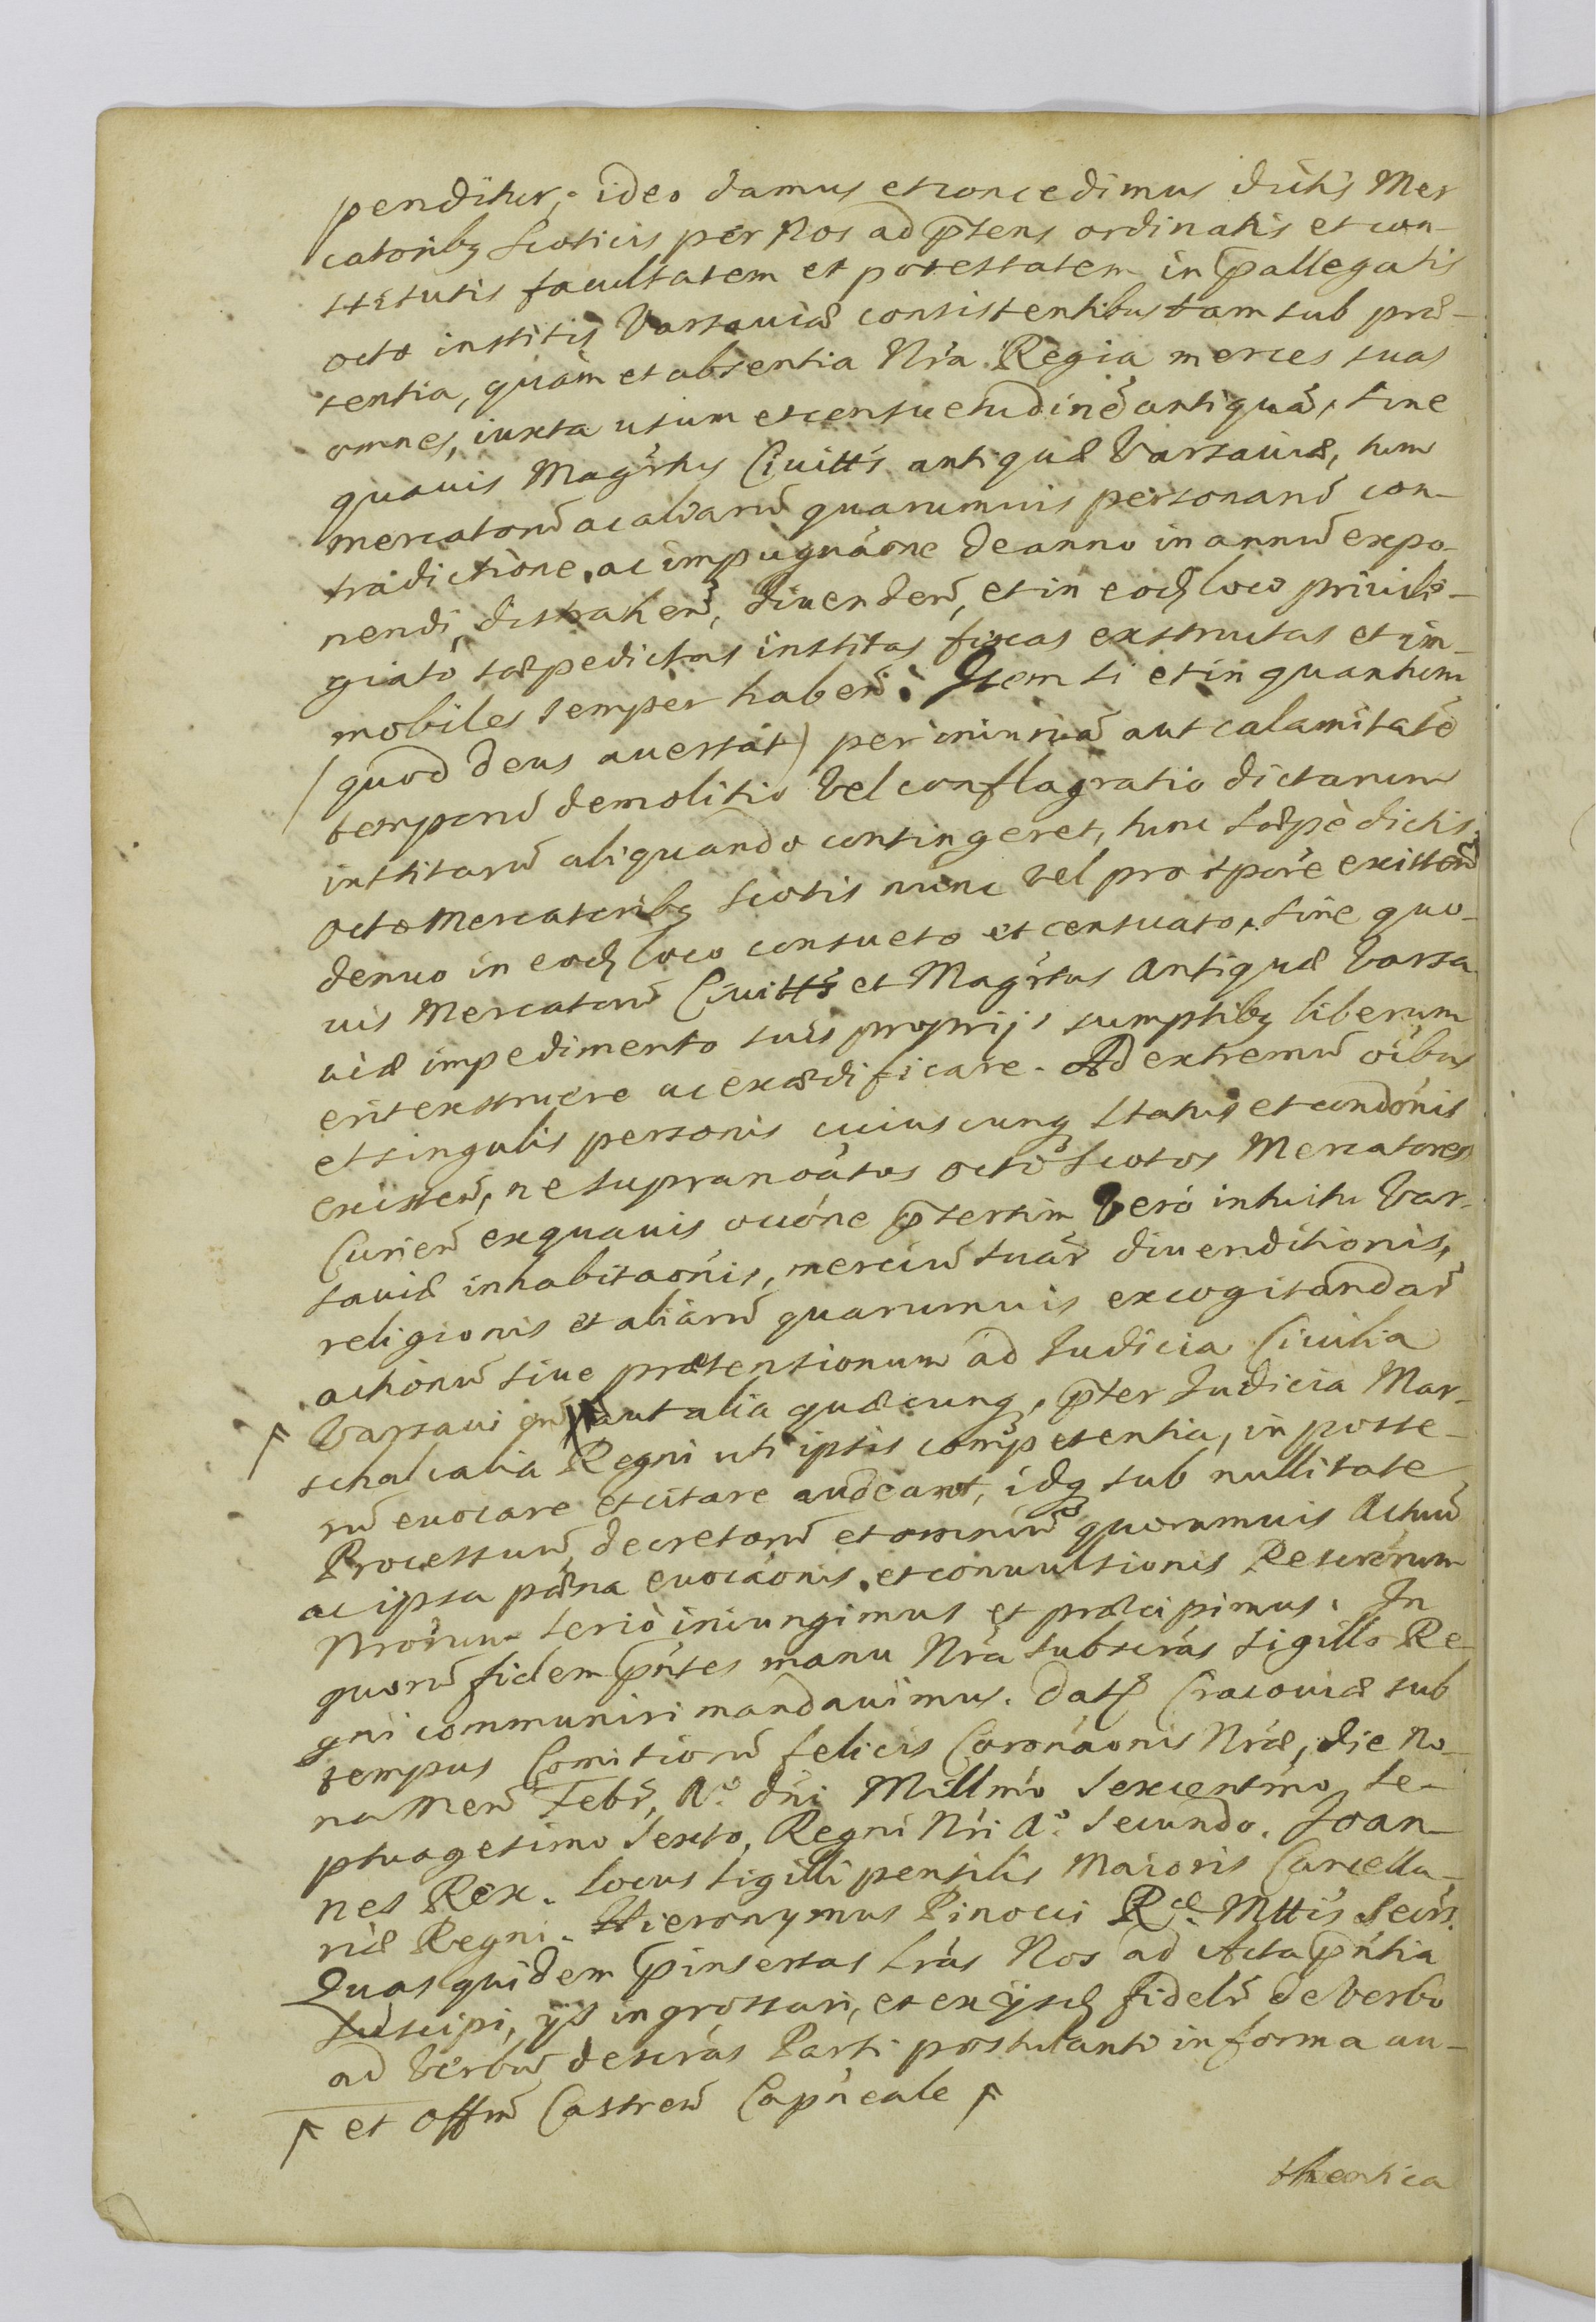 penditur, ideo damus et concedimus dictis Mer
catoribꝫ Scoticis per Nos ad p̄sens ordinatis et con-
stitutis facultatem et potestatem in p̄allegatis
octo institis Varsaviæ consistentibus tam sub præ-
sentia, quàm et absentia Nr̃a Regia merces suas
omnes, iuxta usum et consuetudinẽ antiquã, sine
quavis Magr̃tus Civitt̃s antiquæ Varsaviæ, tum
mercatorũ ac aliarũ quarumvis personarũ con-
tradictione, ac impugnãone de anno in annũ expo-
nendi, distrahen̄, divenden̄, et in eodꝫ loco privile-
giato sæpedictas institas fixas exstructas et im-
mobiles semper haben̄. Item si et in quantum
(quod Deus avertat) per iniuriã aut calamitatẽ
temporũ demolitio vel conflagratio dictarum
institarũ aliquando contingeret, tunc sæpè dictis
octo Mercatoribꝫ Scotis nunc vel pro tpore existen̄
denuo in eodꝫ loco consueto et censuato, sine quo-
vis Mercatorũ Civitt̃s et Magr̃tus Antiquæ Varsa
viæ impedimento suis proprijs sumptibꝫ liberum
erit exstruere ac exædificare. Ad extremũ oĩbus
et singulis personis cuiuscunqꝫ status et condõnis
existen̄, ne supranoãtos octo Scotos Mercatores
Curien̄ ex quavis occõne p̄sertim verò intuitu Var-
saviæ inhabitaõnis, merciũ suar̄ divenditionis,
religionis et aliarũ quarumvis excogitandar̄
actionũ sive prætensionum ad Iudicia Civilia
Varsavien̄ aut alia quæcunqꝫ, p̄ter Iudicia Mar-
schalcalia Regni uti ipsis competentia, in poste-
rũ evocare et citare audeant, idqꝫ sub nullitate
Processuũ, decretorũ et omniũ quorumvis Actuũ
ac ipsa pœna evocãonis, et convulsionis Rescrõrum
Nrorum seriò iniungimus et præcipimus. In
quorũ fidem p̄ntes manu Nrã subscrãs sigillo Re-
gni communiri mandavimus. Datꝫ Cracoviæ sub
tempus Comitiorũ felicis Coronãonis Nr̃æ, die No-
na Men̄ Febr̄, Aº. dñi Millmo Sexcentmo, Se-
ptuagesimo Sexto, Regni Nr̃i Aº. Secundo. Ioan-
nes Rex. Locus sigilli pensilis Maioris Cancella-
riæ Regni. Hieronymus Pinocci Ræ. Mttis Secrs.
Quas quidem p̄insertas Lrãs Nos ad Acta p̄ntia
suscipi, ijs ingrossari, et ex ijsdꝫ fideltr̄ de verbo
ad verbũ descrãs Parti postulanti in forma au-
Γ et Offm̃ Castren̄ Capñeale Γ
thentica